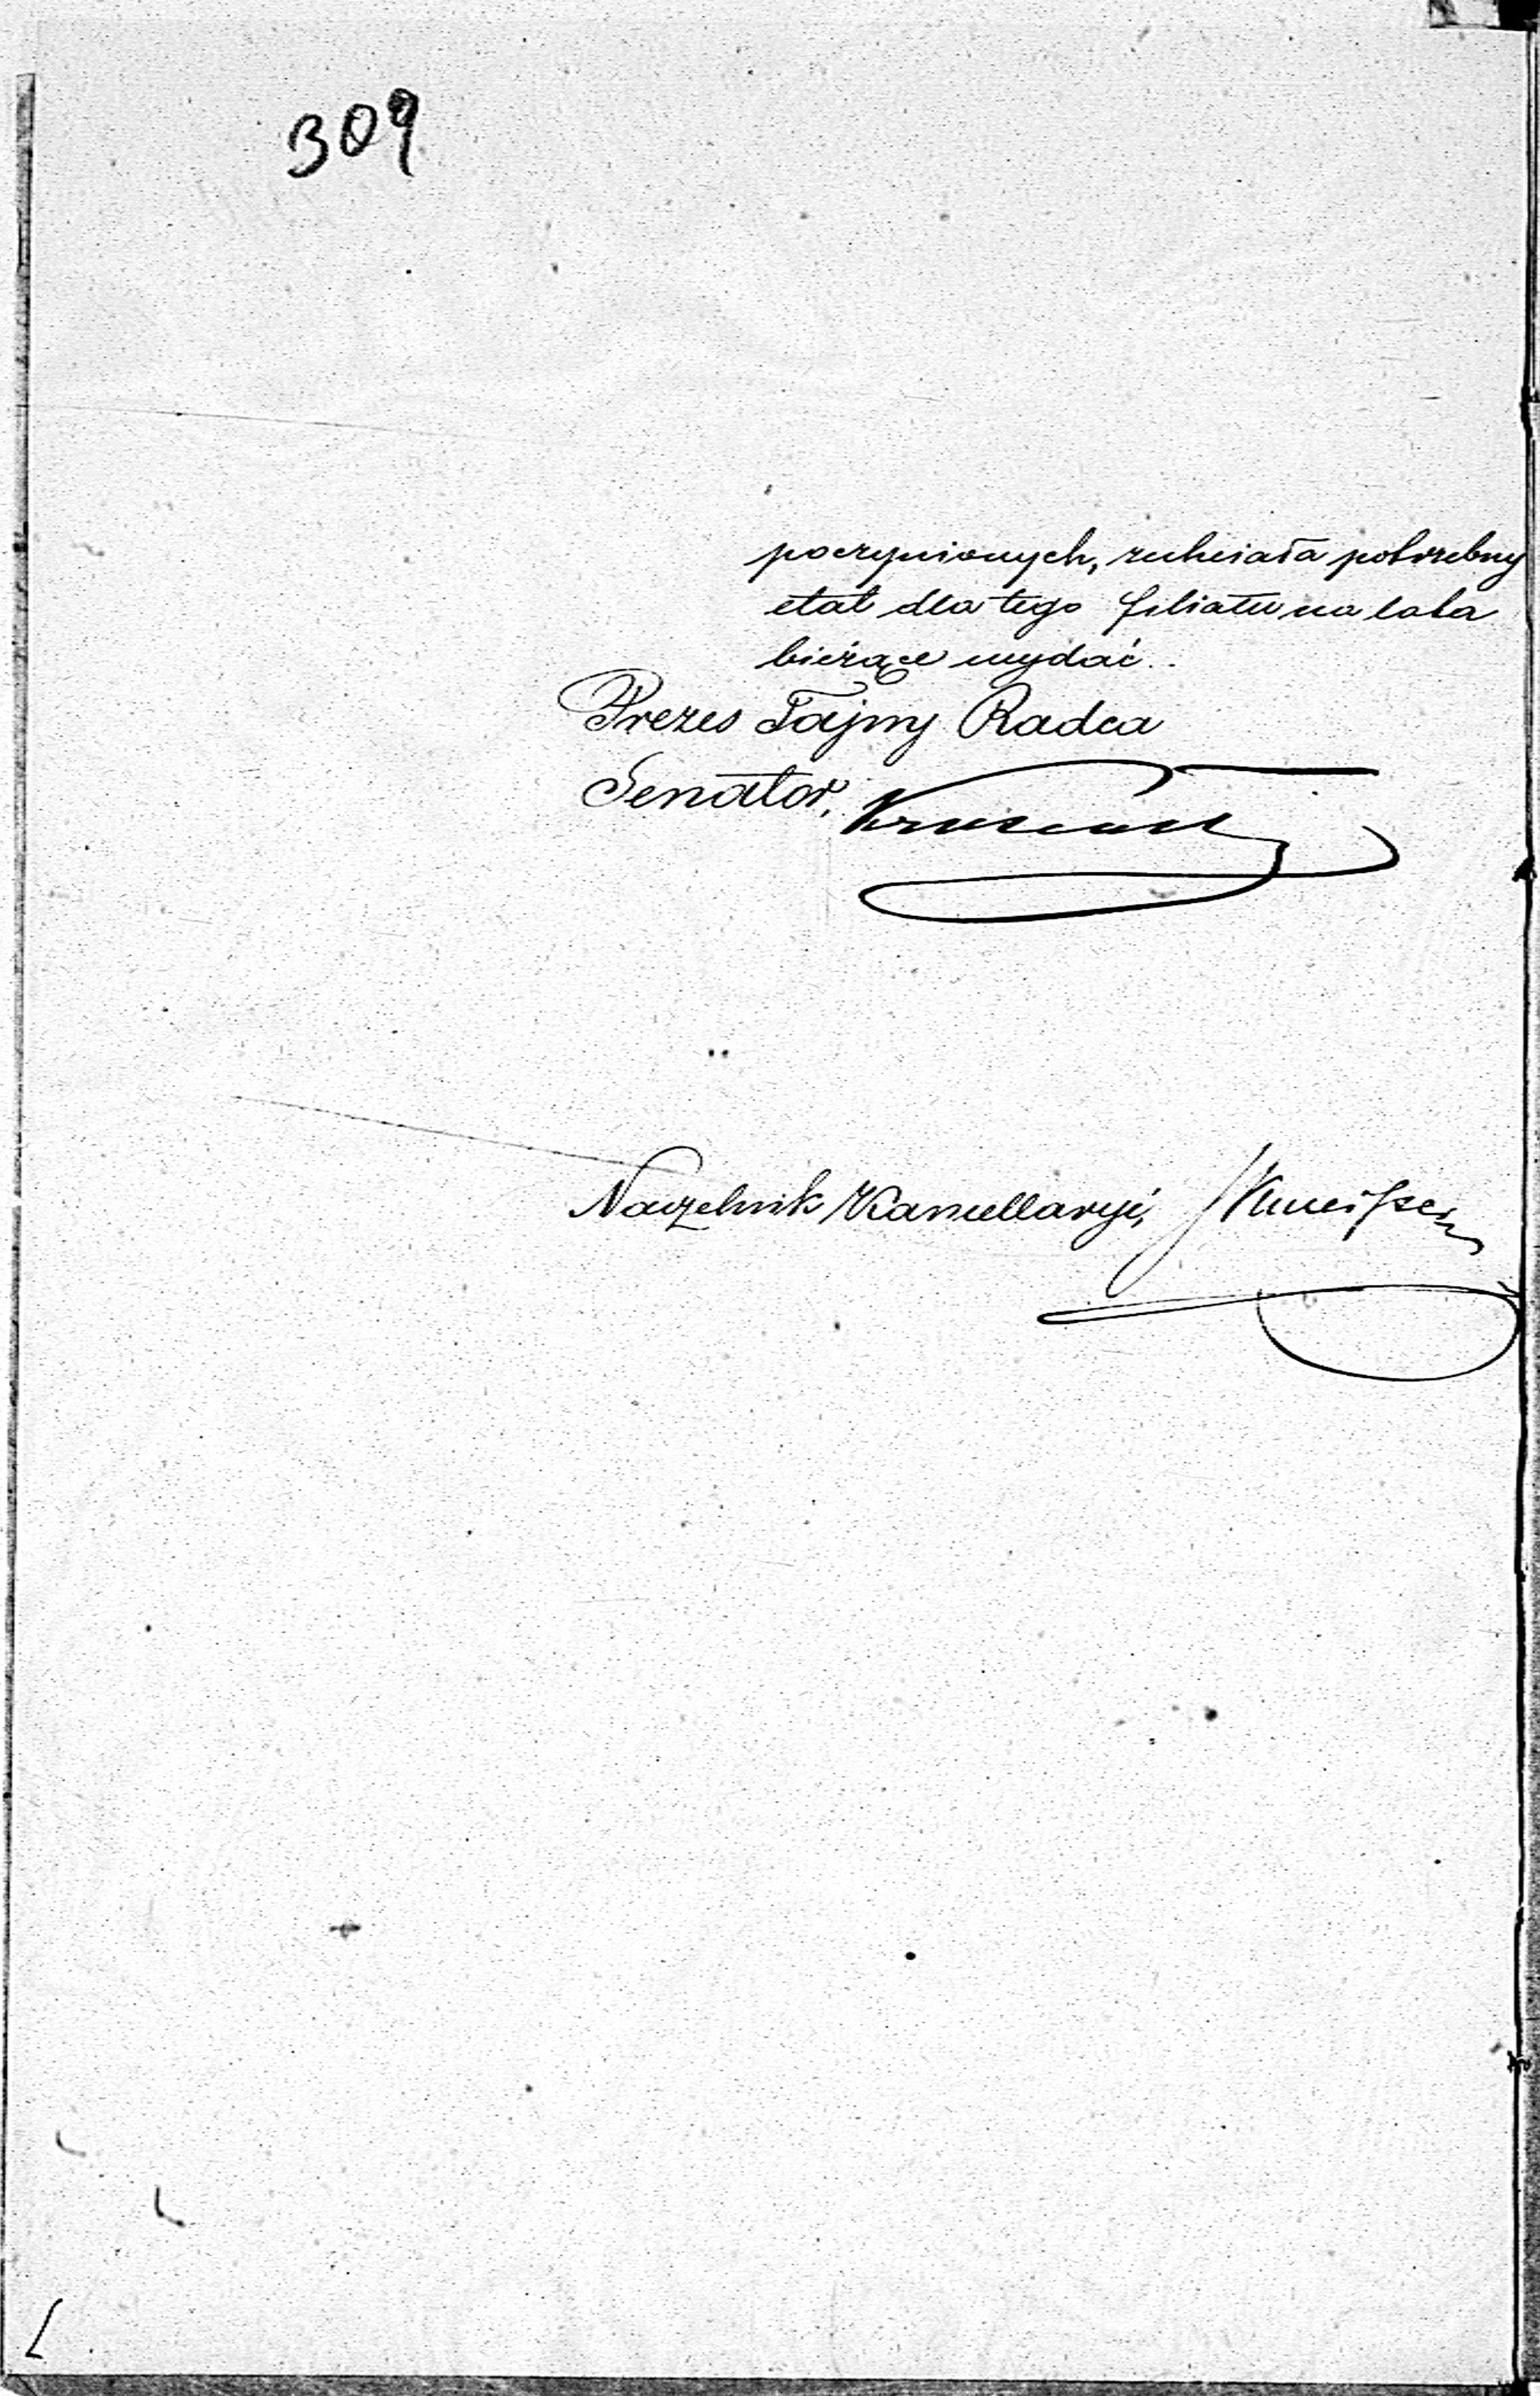 309
poczynionych, zechciała potrzebny
etat dla tego filiału na lata
bieżące wydać.
Prezes Tajny Radca
Senator,
Naczelnik Kancellaryi,